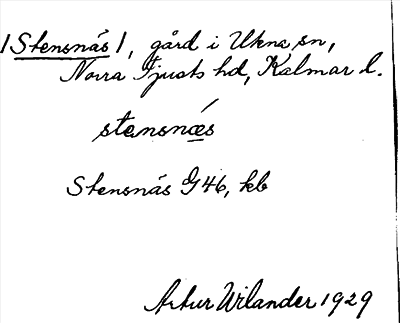 /Stensnäs/, gård i Ukna sn,
Norra Tjusts hd, Kalmar l.
stensnæs
Stensnäs G46, kb
Artur Wilander 1929